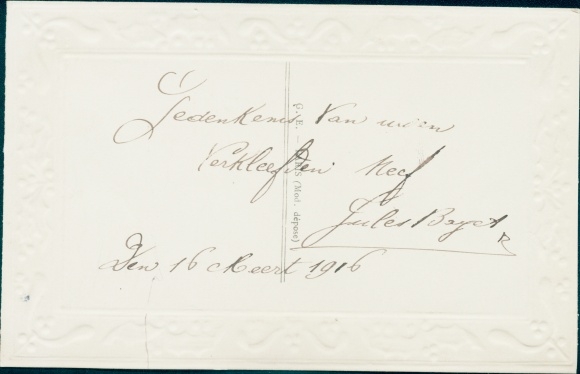 Gedenkenis Van mien
Verkleefden Neef
Jules Beyct
Den 16 Meert 1916
G. F. — PARIS (Mod. déposé)